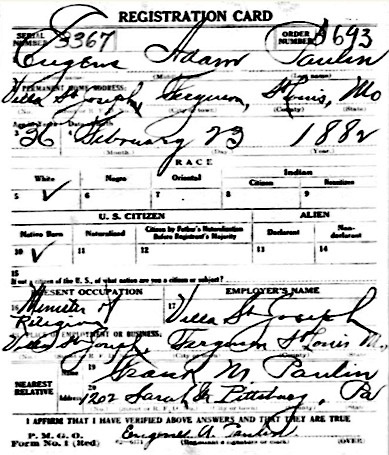 REGISTRATION CARD
SERIAL NUMBER 3367 ORDER NUMBER 3693
Eugene Adam Paulin
PERMANENT HOME ADDRESS:
Villa St Joseph, Ferguson, St Louis, Mo
36 February 23 1882
(Month) (Day) (Year)
RACE
White Negro Oriental Indian
Citizen Noncitizen
5 ✓ 6 7 8 9
U. S. CITIZEN ALIEN
Native Born Naturalized Citizen by Father's Naturalization Before Registrant's Majority Declarant Non-declarant
10 ✓ 11 12 13 14
15
If not a citizen of the U. S., of what nation are you a citizen or subject?
PRESENT OCCUPATION EMPLOYER'S NAME
16 Minister of Religion 17 Villa St Joseph
PLACE OF EMPLOYMENT OR BUSINESS:
Villa St Joseph, Ferguson St Louis Mo,
NEAREST RELATIVE
19 Frank M Paulin
20 Address 1202 Sarah St Pittsburg, Pa
I AFFIRM THAT I HAVE VERIFIED ABOVE ANSWERS AND THAT THEY ARE TRUE
P. M. G. O.
Form No. 1 (Red) Eugene A. Paulin
(Registrant's signature or mark) (OVER)